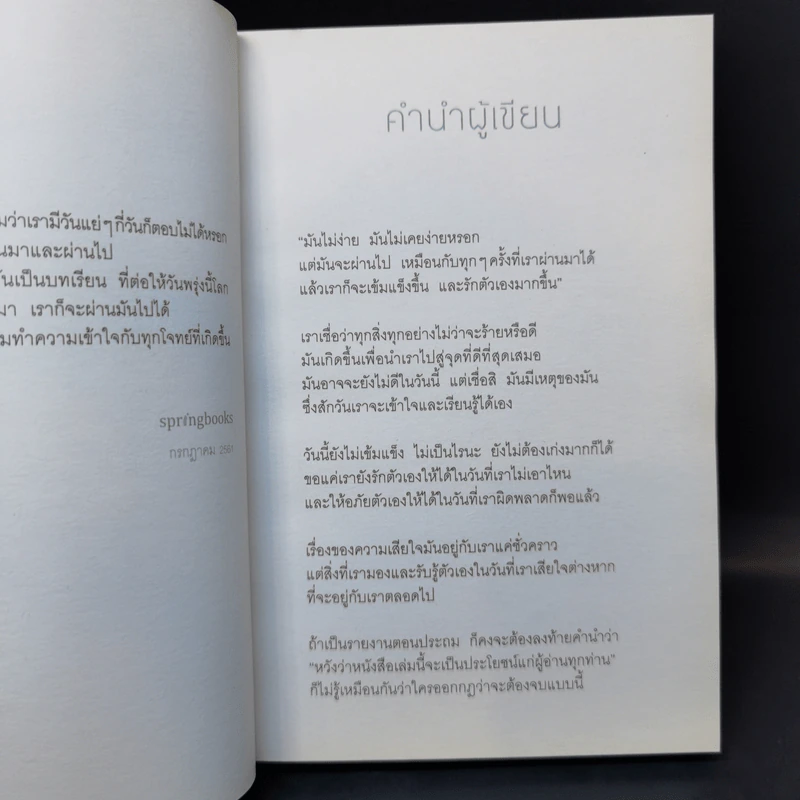 ว่าเรามีวันแย่ๆกี่วันก็ตอบไม่ได้หรอก
มาและผ่านไป
เป็นบทเรียน ที่ต่อให้วันพรุ่งนี้โลก
มา เราก็จะผ่านมันไปได้
ทำความเข้าใจกับทุกโจทย์ที่เกิดขึ้น
springbooks
กรกฎาคม 2561
คำนำผู้เขียน
"มันไม่ง่าย มันไม่เคยง่ายหรอก
แต่มันจะผ่านไป เหมือนกับทุกๆครั้งที่เราผ่านมาได้
แล้วเราก็จะเข้มแข็งขึ้น และรักตัวเองมากขึ้น"
เราเชื่อว่าทุกสิ่งทุกอย่างไม่ว่าจะร้ายหรือดี
มันเกิดขึ้นเพื่อนำเราไปสู่จุดที่ดีที่สุดเสมอ
มันอาจจะยังไม่ดีในวันนี้ แต่เชื่อสิ มันมีเหตุของมัน
ซึ่งสักวันเราจะเข้าใจและเรียนรู้ได้เอง
วันนี้ยังไม่เข้มแข็ง ไม่เป็นไรนะ ยังไม่ต้องเก่งมากก็ได้
ขอแค่เรายังรักตัวเองให้ได้ในวันที่เราไม่เอาไหน
และให้อภัยตัวเองให้ได้ในวันที่เราผิดพลาดก็พอแล้ว
เรื่องของความเสียใจมันอยู่กับเราแค่ชั่วคราว
แต่สิ่งที่เรามองและรับรู้ตัวเองในวันที่เราเสียใจต่างหาก
ที่จะอยู่กับเราตลอดไป
ถ้าเป็นรายงานตอนประถม ก็คงจะต้องลงท้ายคำนำว่า
"หวังว่าหนังสือเล่มนี้จะเป็นประโยชน์แก่ผู้อ่านทุกท่าน"
ก็ไม่รู้เหมือนกันว่าใครออกกฎว่าจะต้องจบแบบนี้